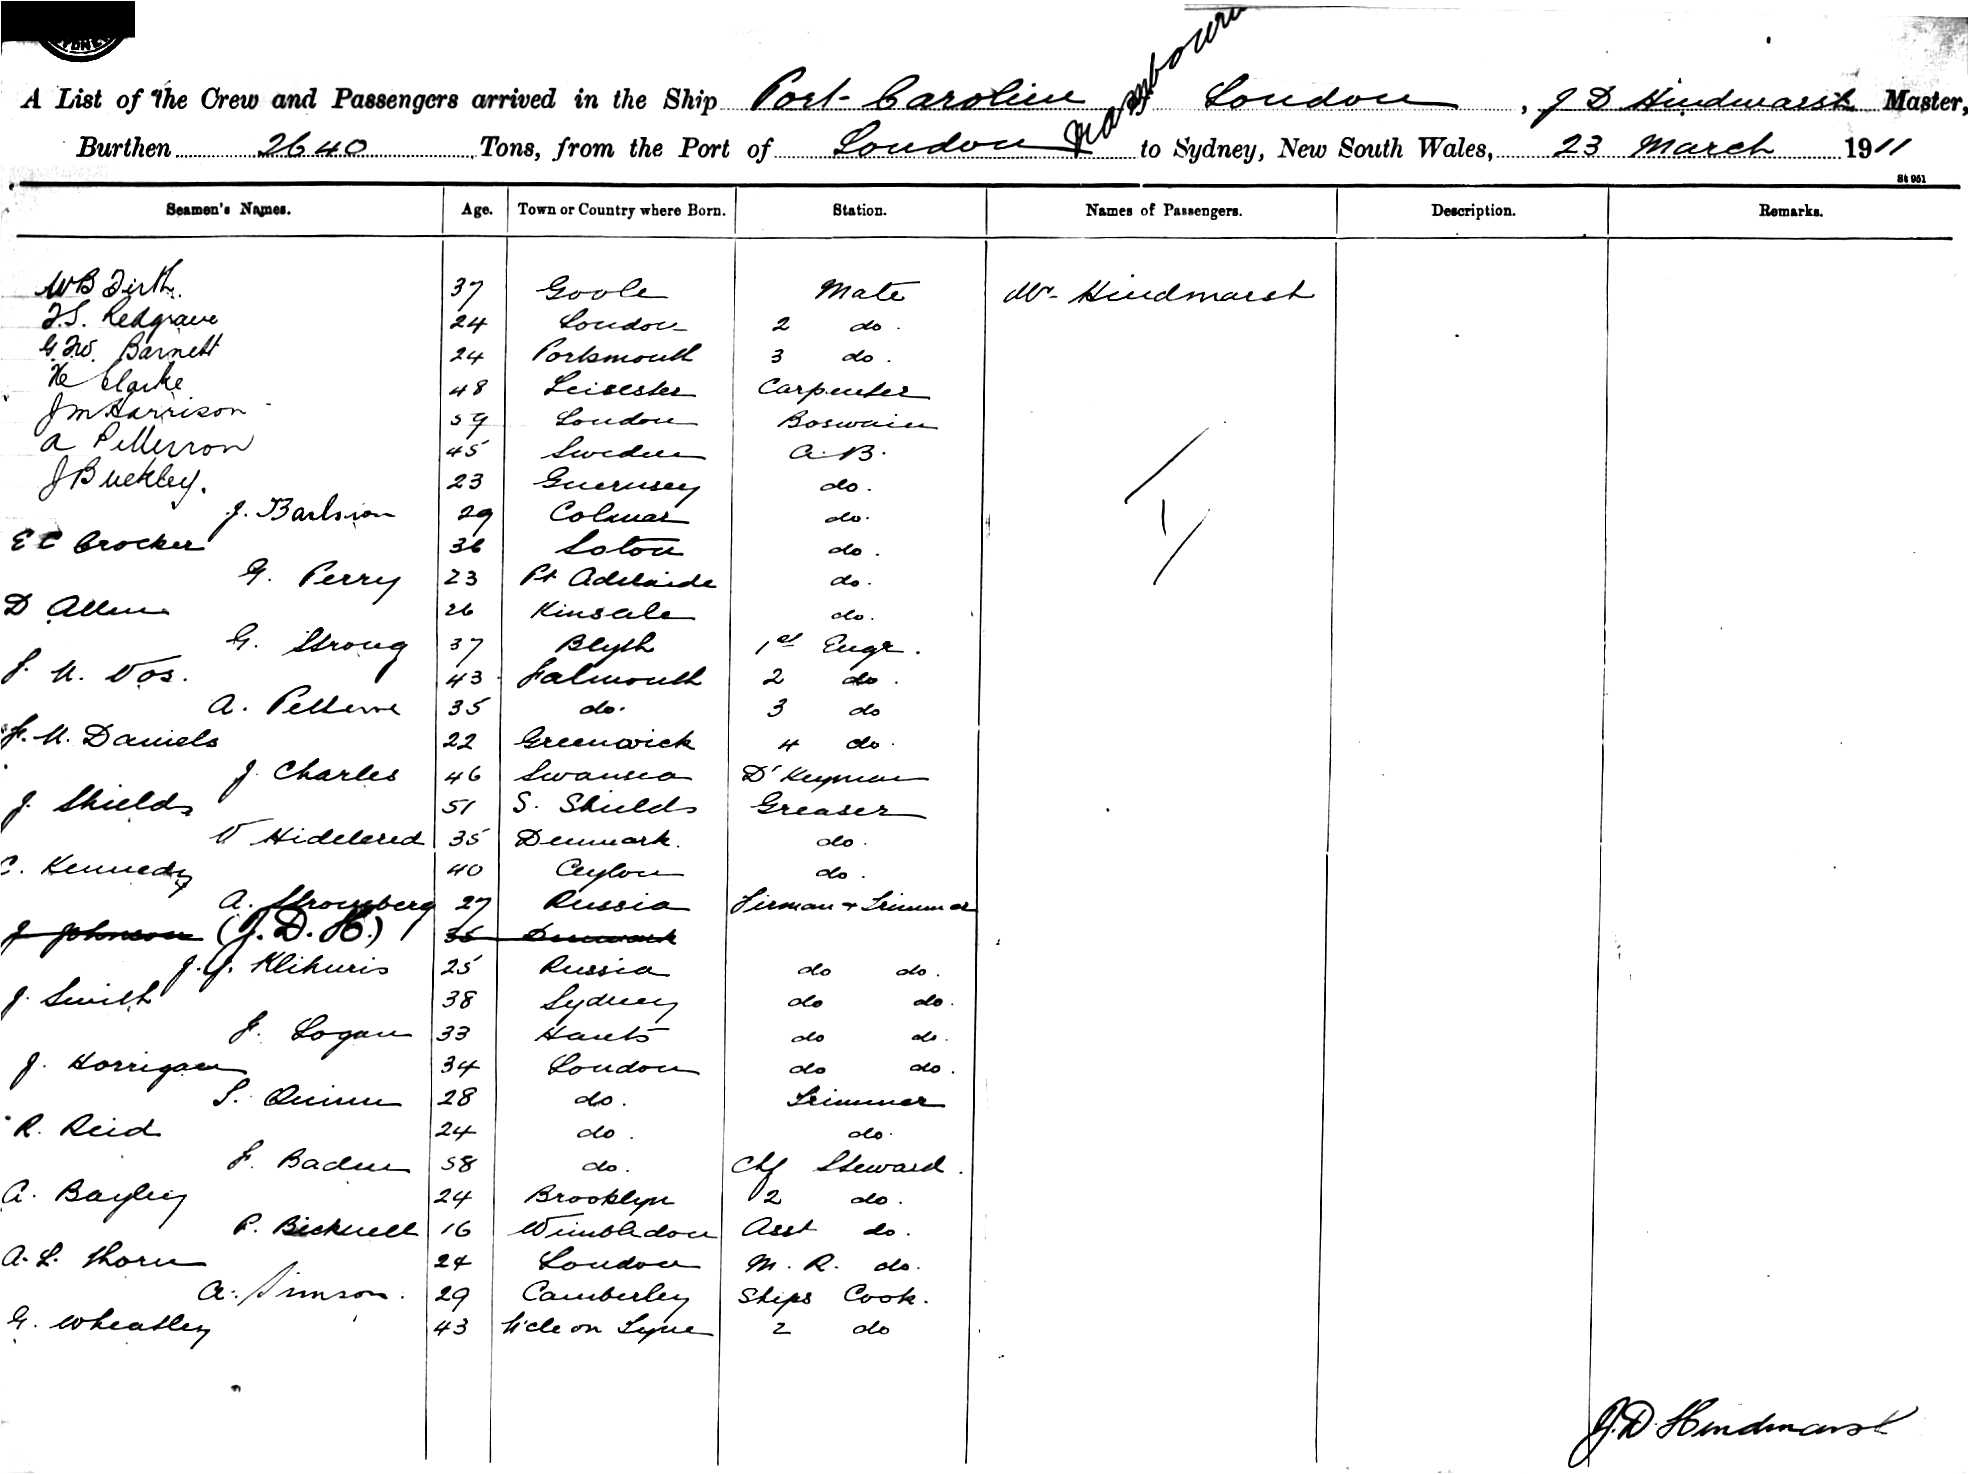 A List of the Crew and Passengers arrived in the Ship Port Caroline of London, J D Hindmarsh Master,
Burthen 2640 Tons, from the Port of London via Melbourne to Sydney, New South Wales, 23 March 1911
St 951
Seamen's Names. Age. Town or Country where Born. Station. Names of Passengers. Description. Remarks.
W B Firth. 37 Goole Mate Mr Hindmarsh
F.S. Redgrave 24 London 2 do.
G.F.W. Barnett 24 Portsmouth 3 do.
H Clarke 48 Leicester Carpenter
J M Harrison 59 London Boswain
A 45 Sweden A.B.
J Buckley. 23 Guernsey do.
J. 29 Colmar do.
E C Crocker 36 Soton do.
G. Perry 23 Pt Adelaide do.
D Allen 26 Kinsale do.
G. Strong 37 Blyth 1st Engr.
F. H. Vos. 43 Falmouth 2 do.
A. 35 do. 3 do
F. H. Daniels 22 Greenwich 4 do.
J Charles 46 Swansea Dkeyman
J. Shields 51 S. Shields Greaser
35 Denmark. do.
C. Kennedy 40 Ceylon do.
A. Stromberg 27 Russia Firman + Trimmer
J Johnson (J.D.H.) 36 Denmark
J. J. Klihuris 25 Russia do do.
J. Smith 38 Sydney do do.
F. Logan 33 Hants do do.
J. Horrigan 34 London do do.
S. Quinn 28 do. Trimmer
R. Reid 24 do. do.
F. Baden 58 do. Chf Steward.
A. Bayley 24 Brooklyn 2 do.
P. Bicknell 16 Wimbledon Asst do.
A. L. Thorn 24 London M. R. do.
A. Simson. 29 Camberley Ships Cook.
G. Wheatley 43 N'cle on Tyne 2 do
1
J.D. Hindmarsh